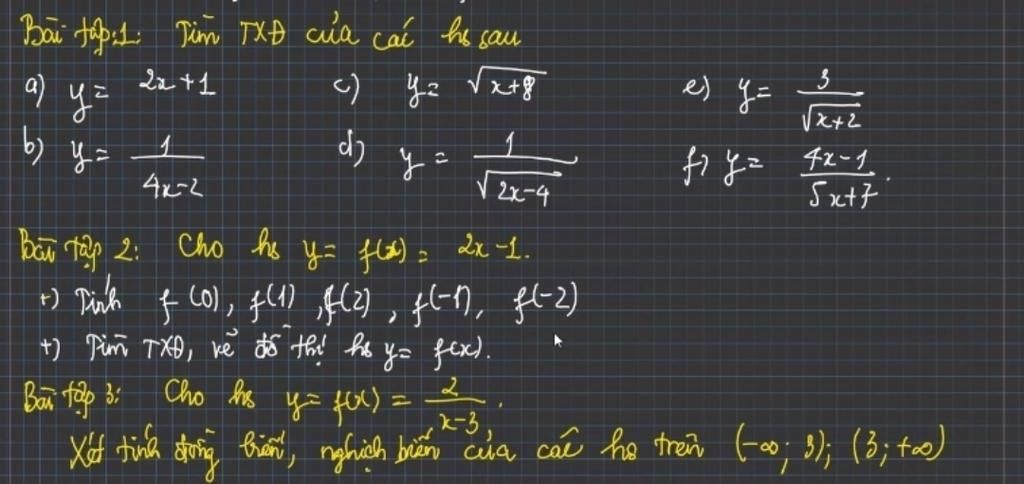 Bài tập 1: Tìm TXĐ của các hs sau
a) y = 2x+1 c) y = √(x+8) e) y = 3/√(x+2)
b) y = 1/(4x-2) d) y = 1/√(2x-4) f) y = (4x-1)/(5x+7).
Bài tập 2: Cho hs y = f(x) = 2x-1.
+) Tính f(0), f(1), f(2), f(-1), f(-2)
+) Tìm TXĐ, vẽ đồ thị hs y = f(x).
Bài tập 3: Cho hs y = f(x) = 2/(x-3).
Xét tính đồng biến, nghịch biến của các hs trên (-∞; 3); (3; +∞)